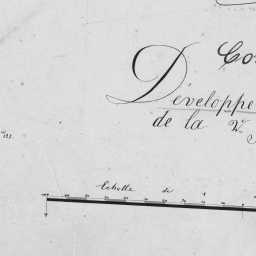 Co
Développe
de la
Echelle de